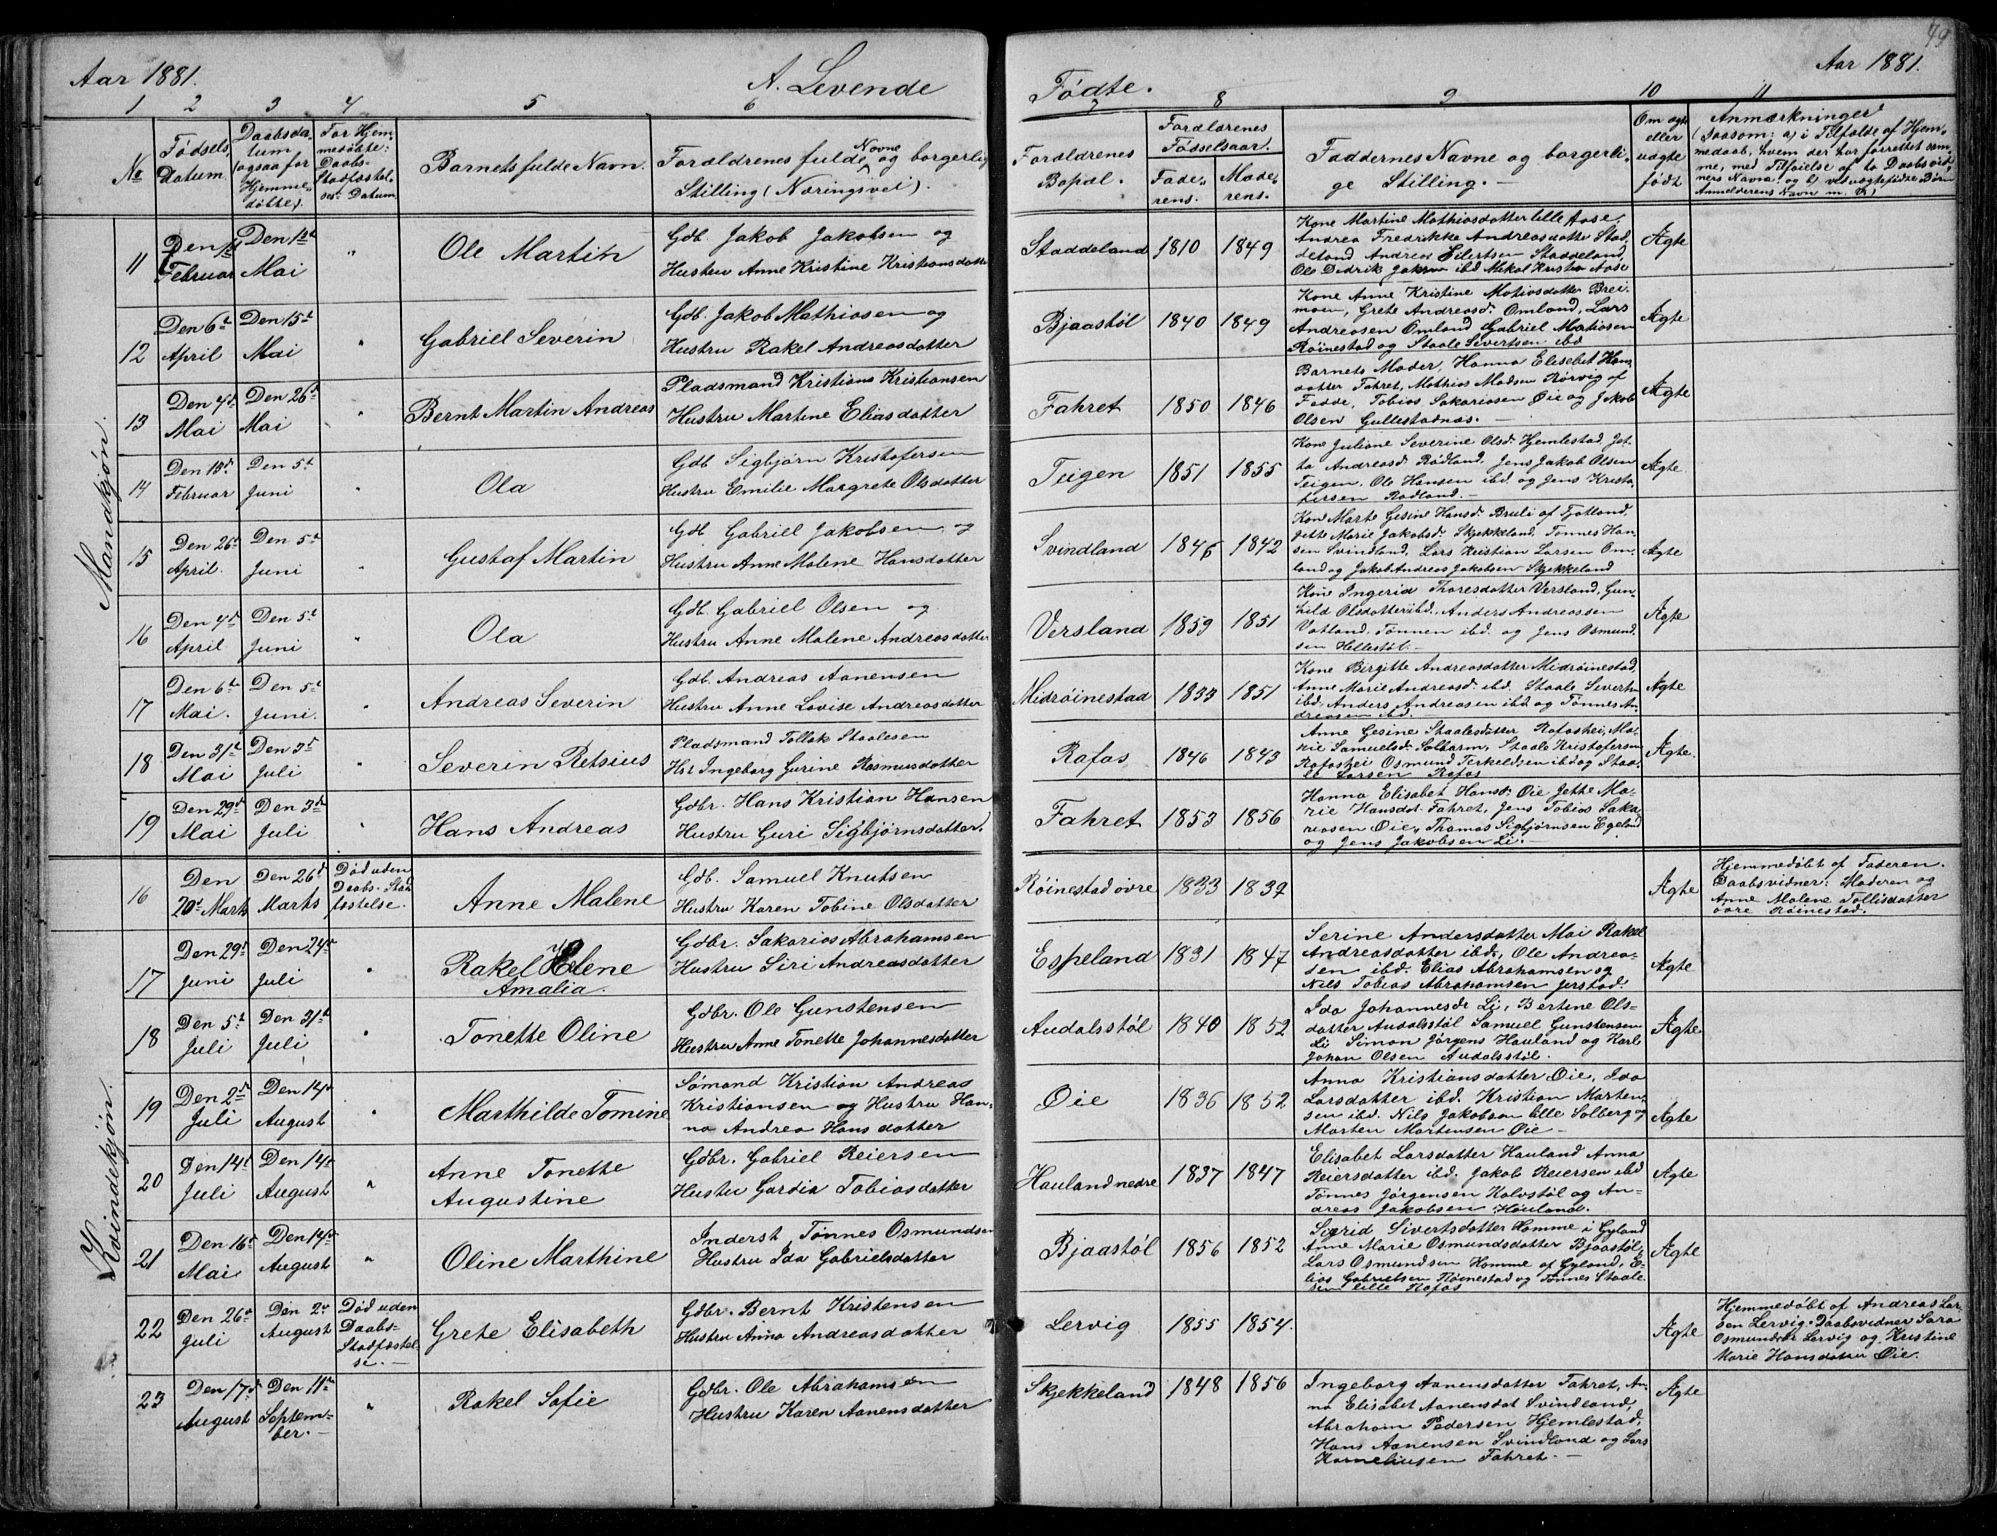 49
Aar 1881.
A. Levende
Fødte.
Aar 1881.
1 2 3 4 5 6 7 8 9 10 11
№
Fødsels datum.
Daabsdatum (ogsaa for Hjemmedøbte).
For Hjemmedøbte: Daabs-Stadfæstelses Datum.
Barnets fulde Navn.
Forældrenes fulde Navne og borgerlige Stilling (Næringsvei).
Forældrenes Bopæl.
Forældrenes Fødselsaar.
Faderens.
Moderens.
Faddernes Navne og borgerlige Stilling.
Om ægte eller uægte født
Anmærkninger
Mandkjøn.
11 Den Februar Den 1st Mai " Ole Martin
Gdb. Jakob Jakobsen og
Hustru Anne Kristine Kristiansdatter
Staddeland 1810 1849
Kone Martine Mathiasdatter lille Aase,
Andrea Fredrikke Andreasdatter Staddeland
Andreas Eilertsen Staddeland,
Ægte
12 Den 6t April Den 15t Mai " Gabriel Severin
Gdb. Jakob Mathiasen og
Hustru Rakel Andreasdatter
Bjaastøl 1840 1849
Kone Anne Kristine
Grete Andreasd. Omland, Lars
Andreasen Omland Gabriel Matiasen
Røinestad og Staale Sivertsen ibd
Ægte
13 Den 4d Mai Den 26d Mai " Bernt Martin Andreas
Pladsmand Kristians Kristiansen
Hustru Martine Eliasdatter
Fahret 1850 1846
Barnets Moder, Hanna Elisebet Hansdatter
Fahret, Mathias Madsen Rørvig af
Fedde, Tobias Sakariasen Øie og Jakob
Olsen Gullestadnæs.
Ægte
14 Den 15d Februar Den 5t Juni " Ola
Gdb Sigbjørn Kristofersen
Hustru Emilie Margrete Olsdatter
Teigen 1851 1855
Kone Juliane Severine Olsd. Hjemlestad,
Andreasd. Rødland, Jens Jakob Olsen
Teigen, Ole Hansen ibd. og Jens Kristofersen
Rødland.
Ægte
15 Den 26d April. Den 5d Juni " Gustaf Martin
Gdb. Gabriel Jakobsen og
Hustru Anne Malene Hansdatter
Svindland 1846 1842
Kone Marte Gesine Hansd. Bruli af Fjotland,
Jette Marie Jakobsd. Skjekkeland, Tønnes Hansen
Svindland, Lars Kristian Larsen Omland
og Jakob Andreas Jakobsen Skjekkeland
Ægte
16 Den 4d April Den 5t Juni " Ola
Gdb. Gabriel Olsen og
Hustru Anne Malene Andreasdatter
Versland 1859 1851
Kone Ingerid Thoresdatter Versland, Gunhild
Olsdatter ibd., Anders Andreassen
Vatland, Tønnen ibd. og Jens Osmundsen
Hellestøl.
Ægte
17 Den 6te Mai. Den 5t Juni. " Andreas Severin
Gdb. Andreas Aanensen
Hustru Anne Lovise Andreasdatter
Midrøinestad 1833 1851
Kone Birgitte Andreasdatter Midrøinestad,
Anne Marie Andreasd. ibd. Staale Severtsen
ibd. Anders Andreasen ibd og Tønnes Andreasen
ibd.
Ægte
18 Den 31t Mai Den 3d Juli " Severin Retsius
Pladsmand Tollak Staalesen
Hst Ingeborg Gurine Rasmusdatter
Rafas 1846 1843
Anne Gesine Staalesdatter Rafoshei, Marie
Samuelsd. Solbarm, Staale Kristofersen
Rafoshei Osmund Terkeldsen ibd og Staale
Larsen Rafos
Ægte.
19 Den 29d Mai Den 3d Juli " Hans Andreas
Gdbr. Hans Kristian Hansen
Hustru Guri Sigbjørnsdatter.
Fahret 1853 1856
Hanna Elisabet Hansd. Øie, Jette Marie
Hansdat. Fahret, Jens Tobias Sakariasen
Øie, Thomas Sigbjørnsen Egeland
og Jens Jakobsen Li.
Ægte
Kvindekjøn.
16 Den 20d Marts Den 26d Marts Død uden Daabs-Stadfæstelse. Anne Malene
Gdb. Samuel Knutsen
Hustru Karen Tobine Olsdatter
Røinestad øvre 1833 1837
Ægte
Hjemmedøbt af Faderen.
Daabsvidner: Moderen og
Anne Malene Tollisdatter
øvre Røinestad.
17 Den 29d Juni Den 24d Juli " Rakel Helene Amalia.
Gdbr. Sakarias Abrahamsen
Hustru Siri Andreasdatter
Espeland 1831 1847
Serine Andersdatter Moi Rakel
Andreasdatter ibd., Ole Andreasen
ibd. Elias Abrahamsen og
Nils Tobias Abrahamsen Jerstad.
Ægte
18 Den 5t Juli Den 31t Juli " Tonette Oline
Gdbr. Ole Gunstensen
Hustru Anne Tonette Johannesdatter
Audalsstøl 1840 1852
Ida Johannesdr Li, Bertine Olsdatter
Audalsstøl Samuel Gunstensen
Li Simon Jørgens Hauland og Karl
Johan Olsen Audalsstøl.
Ægte
19 Den 2d Juli Den 14d August " Marthilde Tomine
Sømand Kristian Andreas
Kristiansen og Hustru Hanna
Andrea Hansdatter
Øie 1836 1852
Anna Kristiansdatter Øie, Ida
Larsdatter ibd. Kristian Martensen
ibd. Nils Jakobsen lille Solberg og
Marten Martensen Øie
Ægte
20 Den 14d Juli Den 14d August " Anne Tonette Augustine
Gdbr. Gabriel Reiersen
Hustru Gardia Tobiasdatter
Hauland nedre 1837 1847
Elisabet Larsdatter Hauland Anna
Reiersdatter ibd. Jakob Reiersen ibd
Tønnes Jørgensen Kalvstøl og Andreas
Jakobsen Hauland.
Ægte
21 Den 16d Mai Den 14d August " Oline Marthine
Inderst Tønnes Osmundsen
Hustru Ida Gabrielsdatter
Bjaastøl 1856 1852
Sigrid Sivertsdatter Homme i Gyland
Anne Marie Osmundsdatter Bjaastøl,
Lars Osmundsen Homme af Gyland, Elias
Gabrielsen Røinestad og Tønnes Staalesen
lille Rafos
Ægte
22 Den 26d Juli Den 2d August Død uden Daabs-Stadfæstelse. Grete Elisabeth
Gdbr. Bernt Kristensen
Hustru Anna Andreasdatter
Lervig 1855 1854.
Ægte
Hjemmedøbt af Andreas Larsen
Lervig. Daabsvidner Sara
Osmundsdr Lervig og Kristine
Marie Hansdatter Øie.
23 Den 17d August Den 11te September. " Rakel Sofie
Gdbr. Ole Abrahamsen
Hustru Karen Aanensdatter
Skjekkeland 1848 1856
Ingeborg Aanensdatter Fahret, Anna
Elisabet Aanensdat Svindland,
Abraham Pedersen Hjemlestad,
Hans Aanensen Svindland og Lars
Korneliusen Fahret.
Ægte